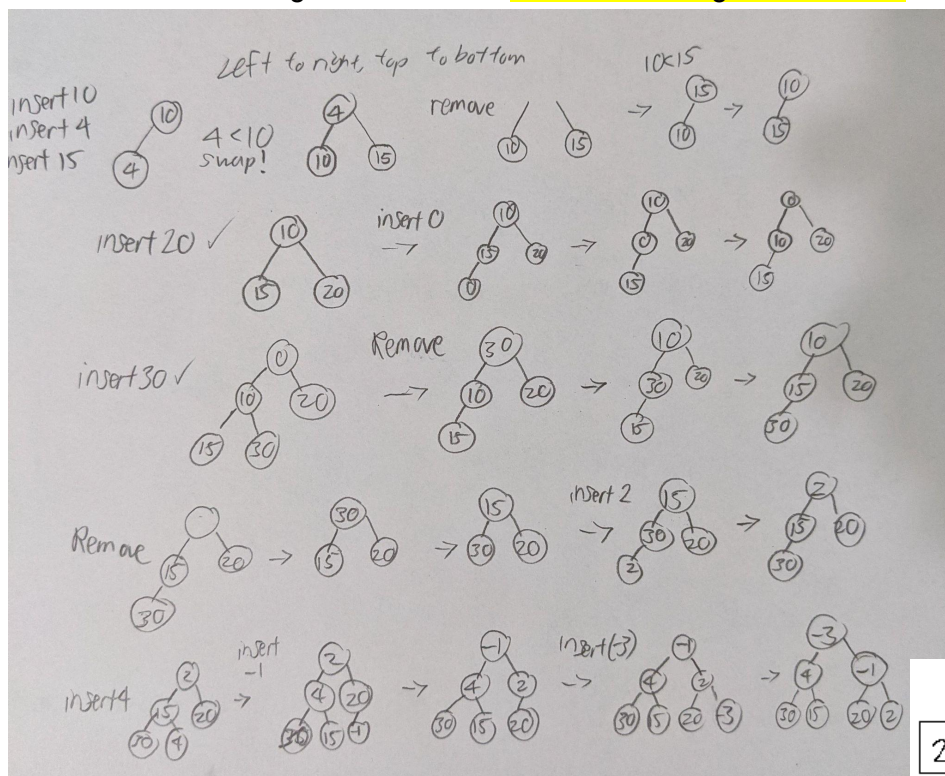 Left to right, top to bottom
insert 10
insert 4
nsert 15
10
4
4<10
swap!
4
10 15
remove
10 15
10<15
→ 15
10
→ 10
15
insert 20 ✓
10
15 20
insert 0
→
10
15 20
0
→ 10
0 20
15
→ 0
10 20
15
insert 30 ✓
0
10 20
15 30
Remove
→
30
10 20
15
→ 10
30 20
15
→ 10
15 20
30
Remove
15 20
30
→ 30
15 20
→ 15
30 20
insert 2
→
15
30 20
2
→ 2
15 20
30
insert 4
2
15 20
30 4
insert
-1
→
2
4 20
30 15 -1
→ -1
4 2
30 15 20
insert(-3)
→
-1
4 2
30 15 20 -3
→ -3
4 -1
30 15 20 2
2